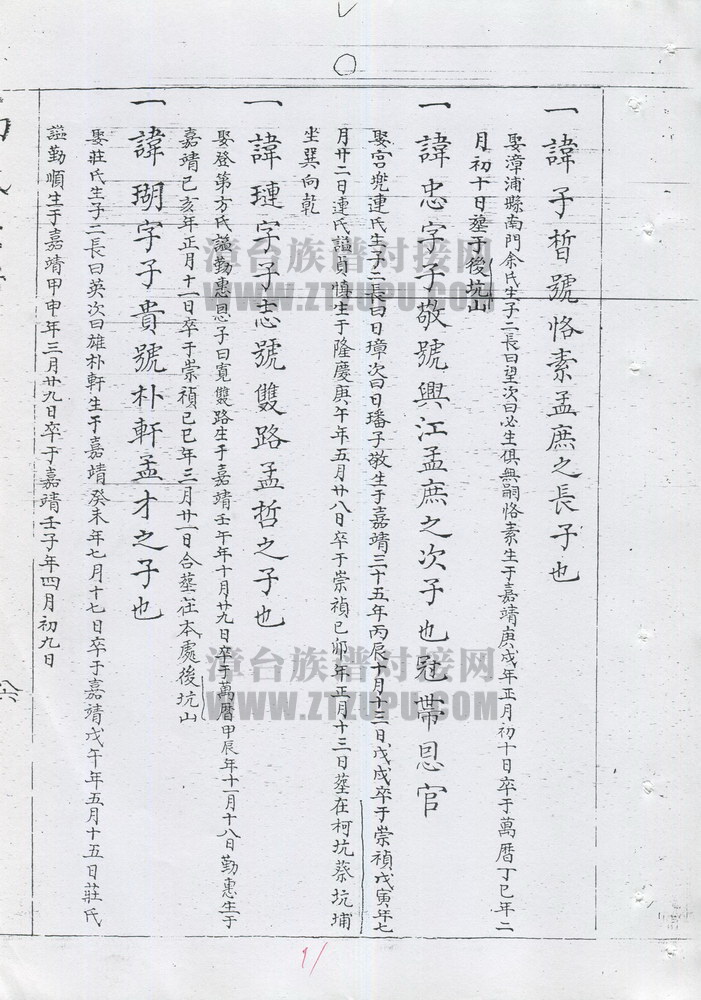 一諱子晳號恪素孟庶之長子也
娶漳浦縣南門余氏生子二長曰望次曰必生俱無嗣恪素生于嘉靖庚戌年正月初十日卒于萬曆丁巳年二
月初十日塟于後坑山
一諱忠字子敬號興江孟庶之次子也冠帶恩官
娶宫兜連氏生子二長曰日璋次曰日璠子敬生于嘉靖三十五年丙辰十月十三日戊戌卒于崇禎戊寅年七
月廿二日連氏謚貞慎生于隆慶庚午年五月廿八日卒于崇禎己卯年正月十三日塟在柯坑蔡坑埔
坐巽向乾
一諱璉字子志號雙路孟哲之子也
娶登第方氏謚勤惠恩子曰寬雙路生于嘉靖壬午年十月廿九日卒于萬曆甲辰年十一月十八日勤惠生于
嘉靖己亥年正月十一日卒于崇禎己巳年三月廿一日合塟在本處後坑山
一諱瑚字子貴號朴軒孟才之子也
娶莊氏生子二長曰英次曰雄朴軒生于嘉靖癸未年七月十七日卒于嘉靖戊午年五月十五日莊氏
謚勤順生于嘉靖甲申年三月廿九日卒于嘉靖壬子年四月初九日
漳台族谱对接网
WWW.ZTZUPU.COM
漳台族谱对接网
WWW.ZTZUPU.COM
91